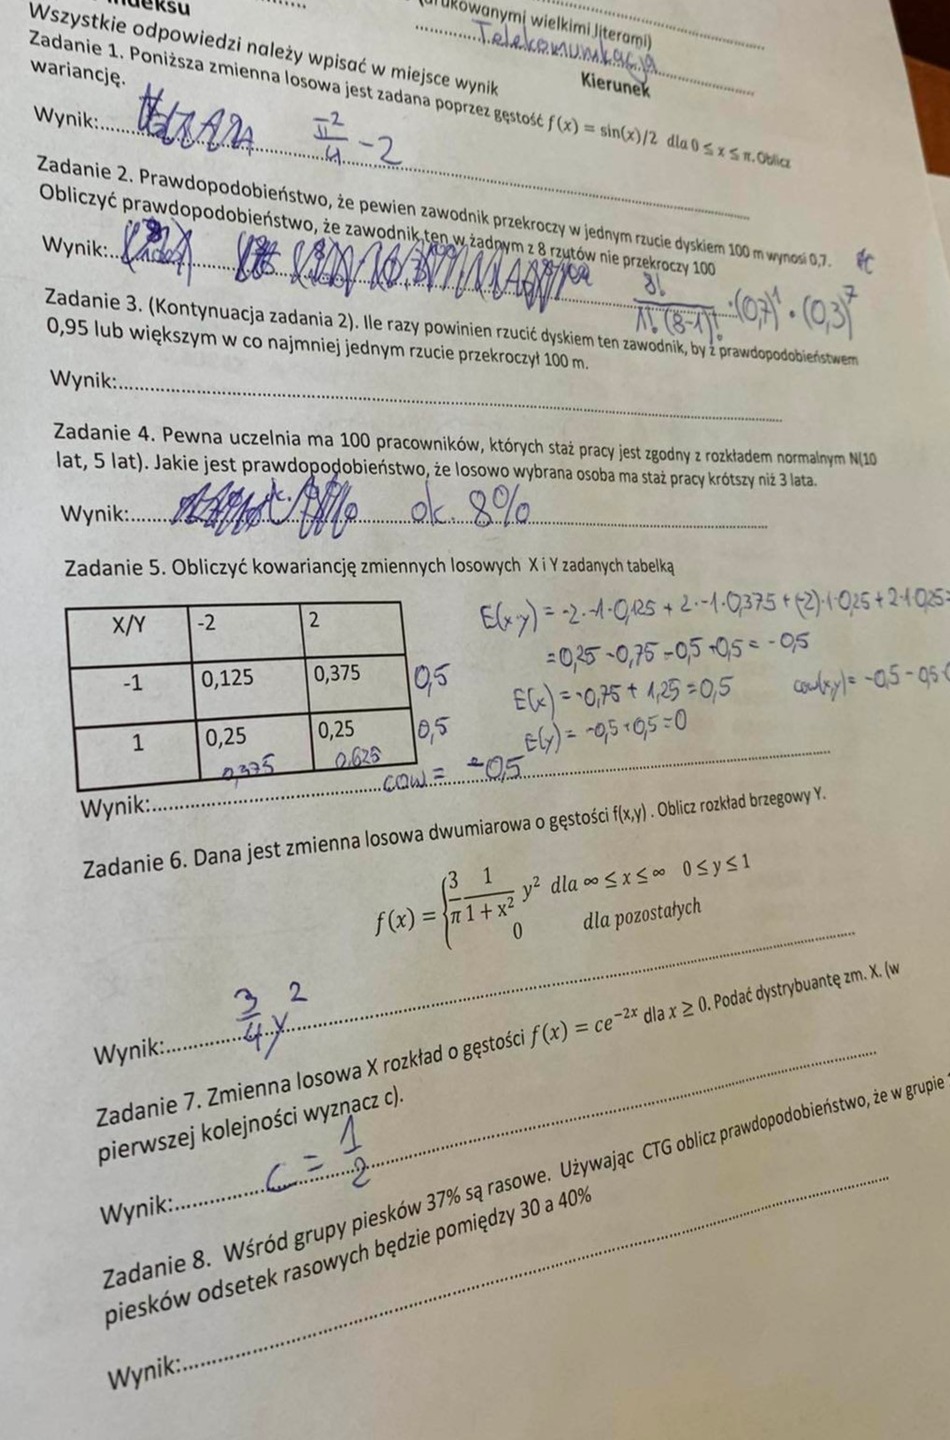 Wszystkie odpowiedzi należy wpisać w miejsce wynik
wielkimi literami)
Telekomunikacja
Kierunek
Zadanie 1. Poniższa zmienna losowa jest zadana poprzez gęstość f(x) = sin(x)/2 dla 0 ≤ x ≤ π. Oblicz
wariancję.
Wynik:..... π²/4 - 2
Zadanie 2. Prawdopodobieństwo, że pewien zawodnik przekroczy w jednym rzucie dyskiem 100 m wynosi 0,7.
Obliczyć prawdopodobieństwo, że zawodnik ten w żadnym z 8 rzutów nie przekroczy 100
Wynik:..... 8!/(1!(8-1)!) · (0,7)¹ · (0,3)⁷
Zadanie 3. (Kontynuacja zadania 2). Ile razy powinien rzucić dyskiem ten zawodnik, by z prawdopodobieństwem
0,95 lub większym w co najmniej jednym rzucie przekroczył 100 m.
Wynik:.....
Zadanie 4. Pewna uczelnia ma 100 pracowników, których staż pracy jest zgodny z rozkładem normalnym N(10
lat, 5 lat). Jakie jest prawdopodobieństwo, że losowo wybrana osoba ma staż pracy krótszy niż 3 lata.
Wynik:..... ok. 8%
Zadanie 5. Obliczyć kowariancję zmiennych losowych X i Y zadanych tabelką
X/Y -2 2
-1 0,125 0,375 0,5
1 0,25 0,25 0,5
0,375 0,625
E(x·y) = -2·-1·0,125 + 2·-1·0,375 + (-2)·1·0,25 + 2·1·0,25=
=0,25 -0,75 -0,5 +0,5 = -0,5
E(x) = -0,75 + 1,25 = 0,5
cov(x,y) = -0,5 - 0,5·0
E(y) = -0,5 + 0,5 = 0
Wynik:..... cow = -0,5
Zadanie 6. Dana jest zmienna losowa dwumiarowa o gęstości f(x,y) . Oblicz rozkład brzegowy Y.
f(x) = { 3/π 1/(1 + x²) y² dla ∞ ≤ x ≤ ∞ 0 ≤ y ≤ 1
0 dla pozostałych
Wynik:..... 3/4 y²
Zadanie 7. Zmienna losowa X rozkład o gęstości f(x) = ce⁻²ˣ dla x ≥ 0. Podać dystrybuantę zm. X. (w
pierwszej kolejności wyznacz c).
Wynik:..... C = 1/2
Zadanie 8. Wśród grupy piesków 37% są rasowe. Używając CTG oblicz prawdopodobieństwo, że w grupie
piesków odsetek rasowych będzie pomiędzy 30 a 40%
Wynik:.....